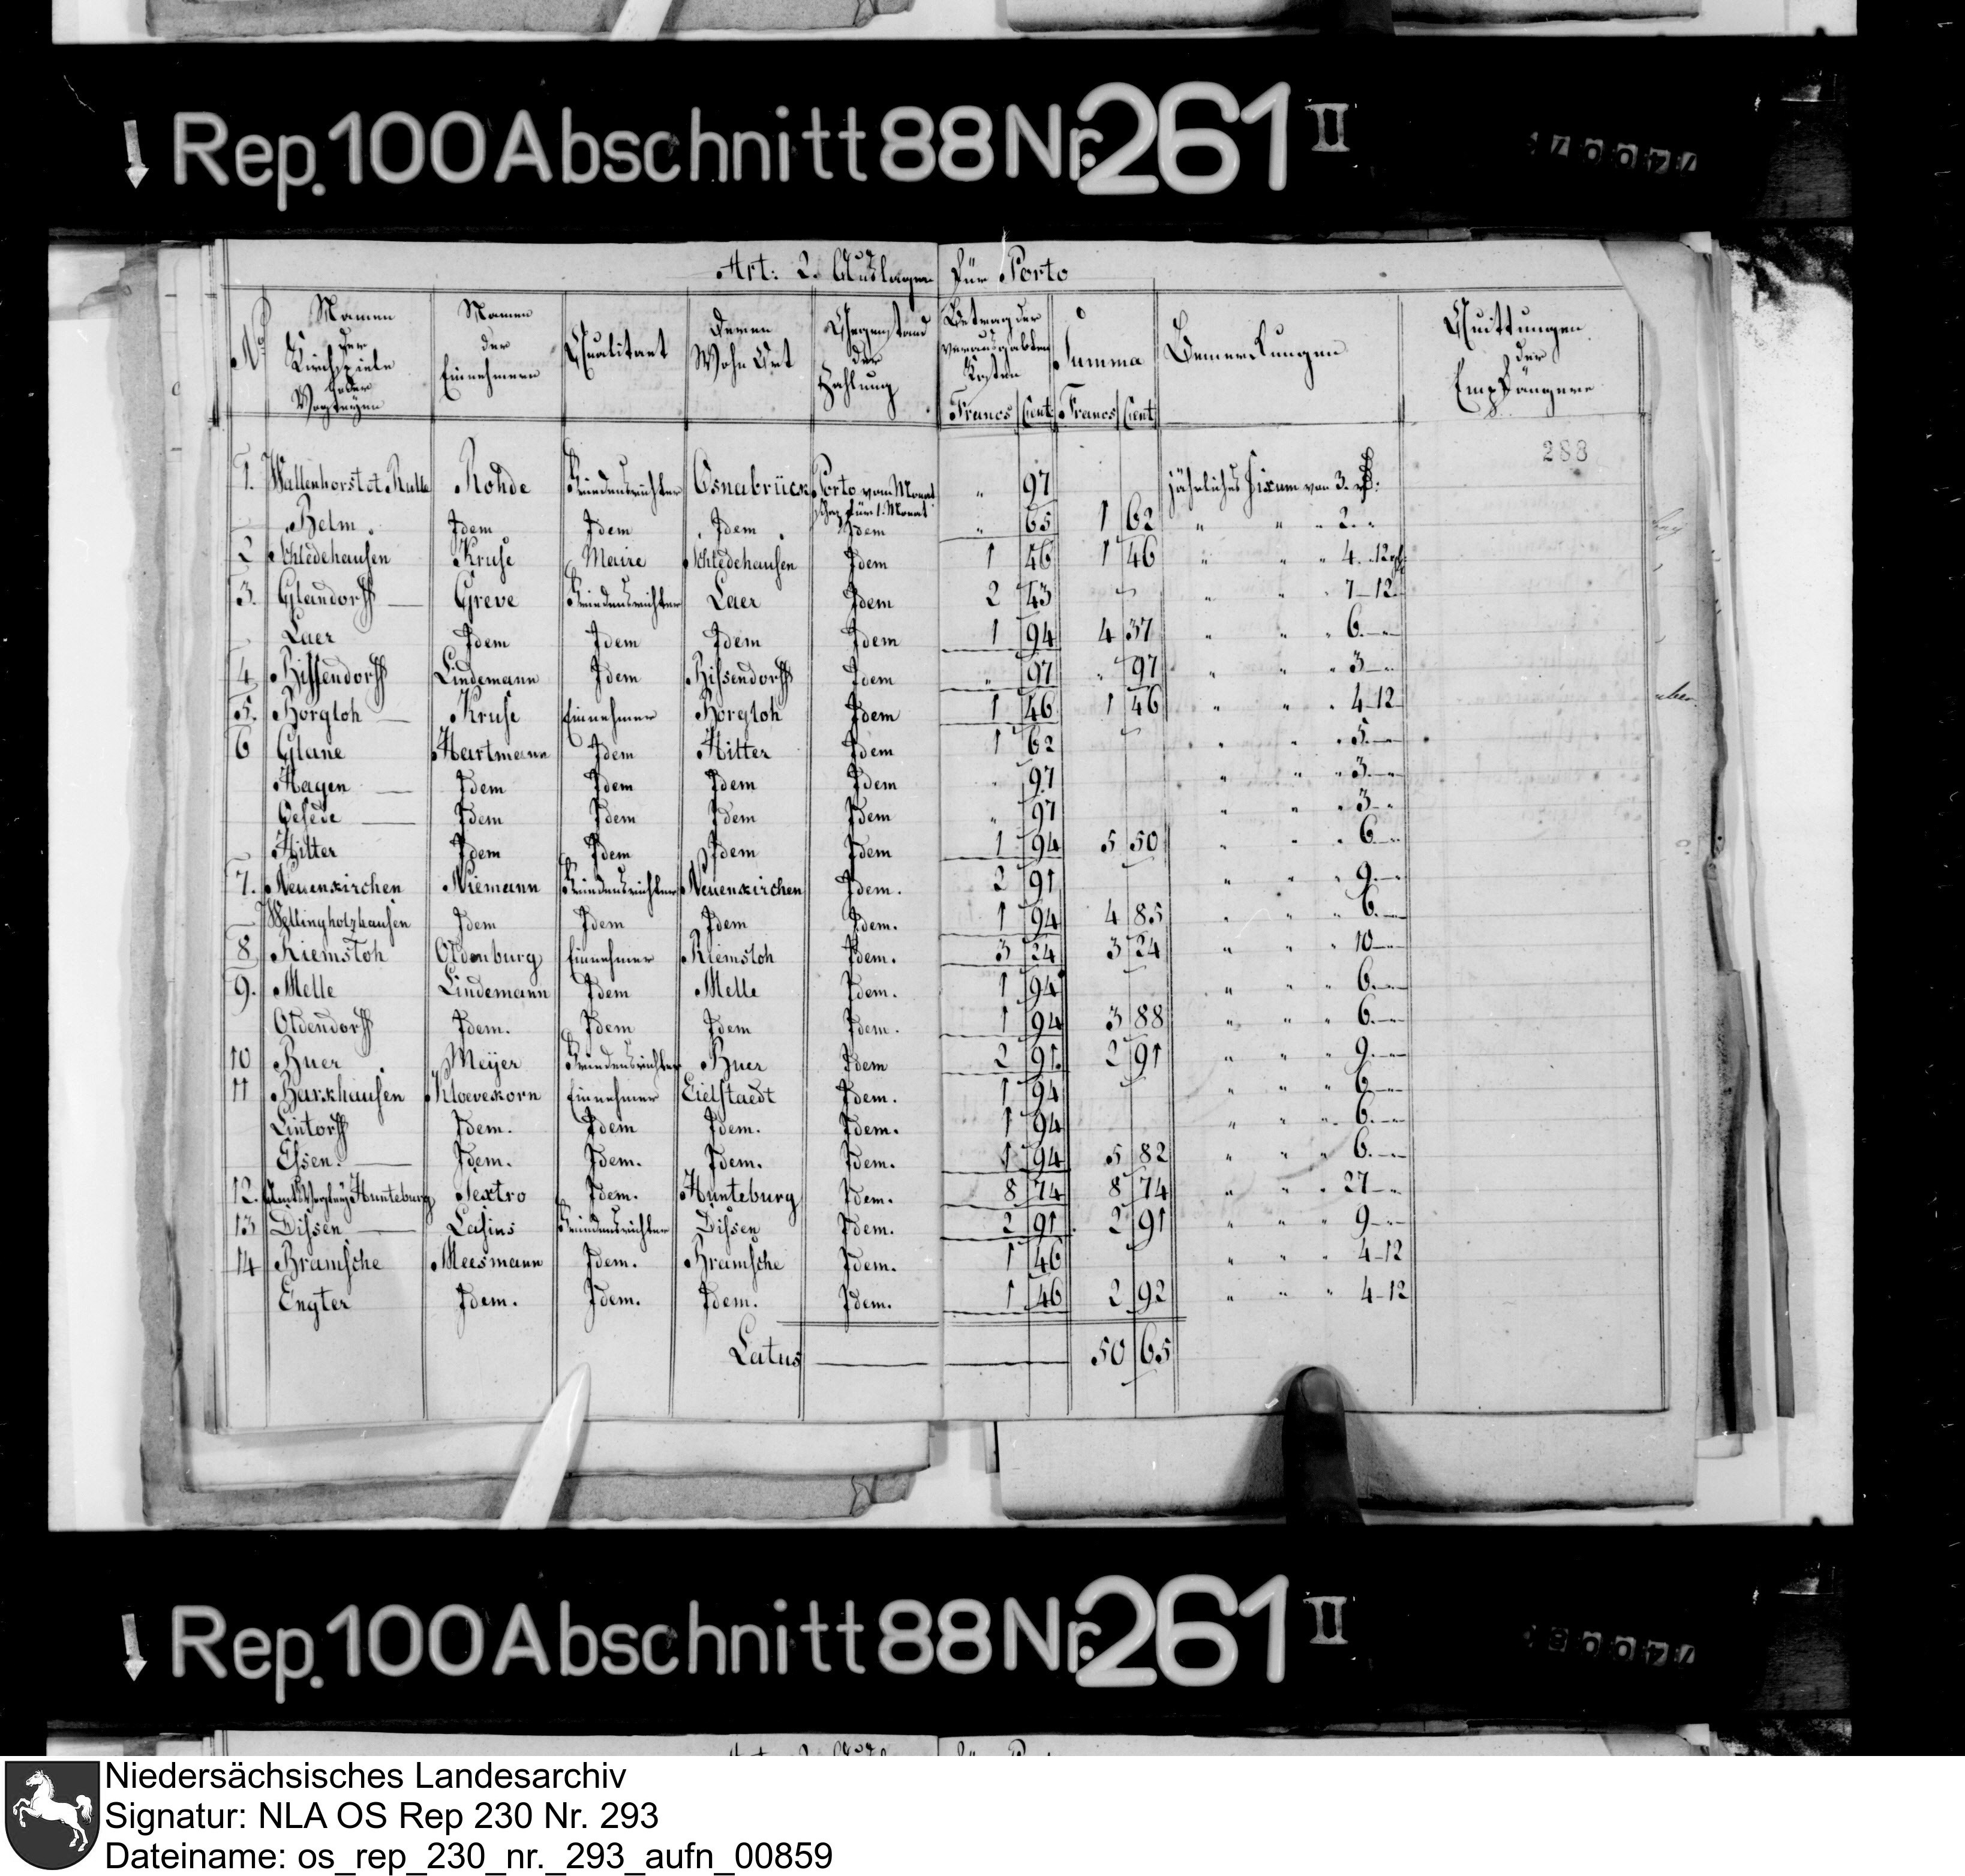 Rep. 100 Abschnitt 88 Nr. 261 II
Art: 2. Auslagen für Porto
No
Namen der Kirchspiele oder Vogteyen
Namen der Einnehmern
Qualitaet
Deren Wohn Ort
Gegenstand der Zahlung
Betrag der verausgabten Kosten
Francs Cent
Summa
Francs Cent
Bemerkungen
Quittungen der Empfängere
288
1. Wallenhorst et Rulle Rohde Friedensrichter Osnabrück Porto vom Monat für 1. Monat " 97 jährliches Fixum von 3.
Belm. Idem Idem Idem Idem " 65 1 62 " " " 2. "
2 Schledehausen Kruse Maire Schledehausen Idem 1 46 1 46 " " 4. 12
3. Glandorff — Greve Friedensrichter Laer Idem 2 43 " " " 7-12
Laer Idem Idem Idem Idem 1 94 4 37 " " " 6.—
4 Bissendorff Lindemann Idem Bissendorff Idem " 97 " 97 " " " 3—
5. Borgloh — Kruse Einnehmer Borgloh Idem 1 46 1 46 " " " 4-12
6 Glane Hartmann Idem Hilter Idem 1 62 " " " 5.—
Hagen — Idem Idem Idem Idem " 97 " " " 3.—
Oesede — Idem Idem Idem Idem " 97 " " " 3—
Hilter Idem Idem Idem Idem 1 94 5 50 " " " 6.—
7. Neuenkirchen Niemann Friedensrichter Neuenkirchen Idem. 2 91 " " " 9.—
Wellingholzhausen Idem Idem Idem Idem. 1 94 4 85 " " " 6.—
8 Riemsloh Oldenburg Einnehmer Riemsloh Idem. 3 24 3 24 " " " 10—
9. Melle Lindemann Idem Melle Idem. 1 94 " " " 6.—
Oldendorff Idem. Idem Idem Idem. 1 94 3 88 " " " 6.—
10 Buer Meÿer Friedensrichter Buer Idem 2 91. 2 91 " " " 9.—
11 Barkhausen Kloevekorn Einnehmer Eielstaedt Idem. 1 94 " " " 6—
Lintorff Idem. Idem Idem. Idem. 1 94 " " " 6.—
Essen. — Idem. Idem. Idem. Idem. 1 94 5 82 " " " 6.—
12. Amts Vogtey Hunteburg Sextro Idem. Hunteburg Idem. 8 74 8 74 " " " 27—
13 Dissen — Lasius Friedensrichter Dissen Idem. 2 91. 2 91 " " " 9—
14 Bramsche Meesmann Idem. Bramsche Idem. 1 46 " " " 4-12
Engter Idem. Idem. Idem. Idem. 1 46 2 92 " " " 4-12
Latus — — 50 65
Rep. 100 Abschnitt 88 Nr. 261 II
Niedersächsisches Landesarchiv
Signatur: NLA OS Rep 230 Nr. 293
Dateiname: os_rep_230_nr._293_aufn_00859